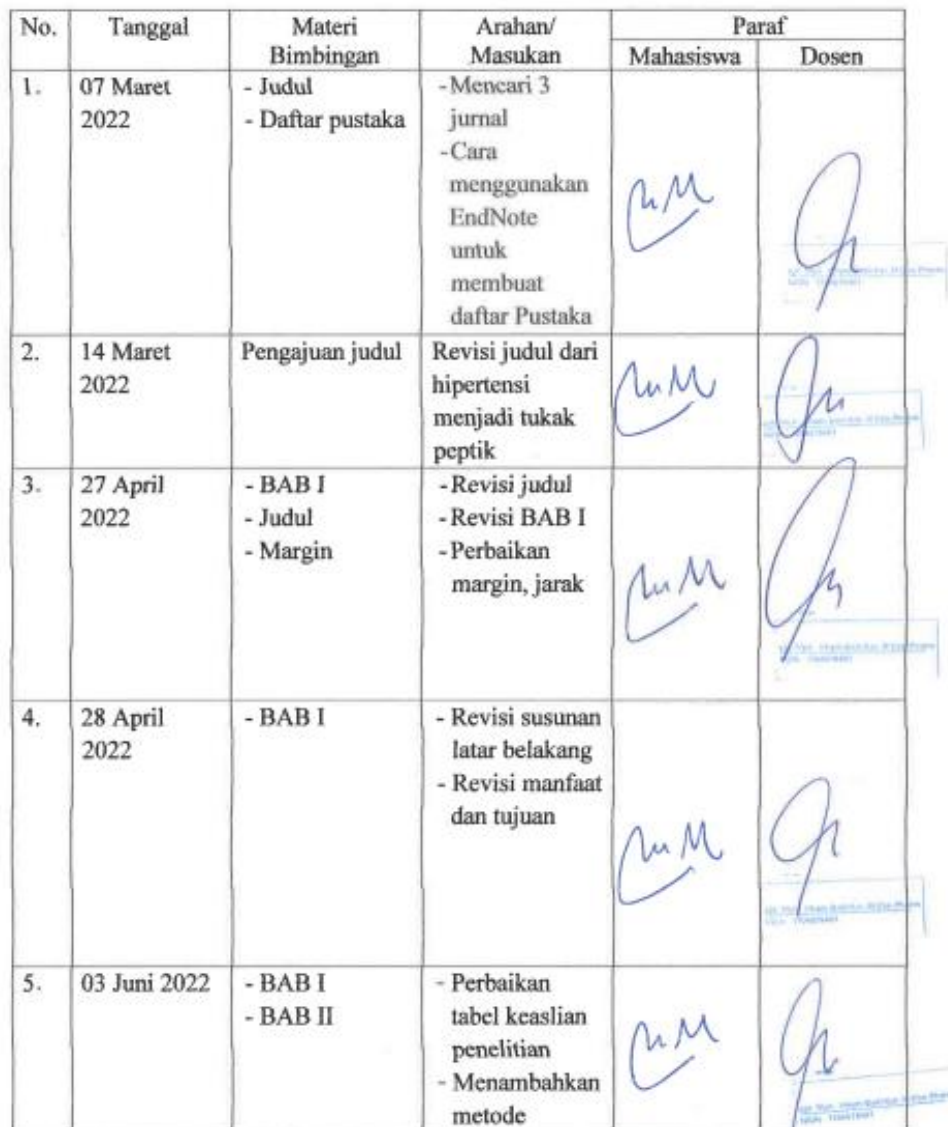 No. Tanggal Materi Bimbingan Arahan/ Masukan Paraf
Mahasiswa Dosen
1. 07 Maret 2022
- Judul
- Daftar pustaka
- Mencari 3
jurnal
- Cara
menggunakan
EndNote
untuk
membuat
daftar Pustaka
2. 14 Maret 2022
Pengajuan judul
Revisi judul dari
hipertensi
menjadi tukak
peptik
3. 27 April 2022
- BAB I
- Judul
- Margin
- Revisi judul
- Revisi BAB I
- Perbaikan
margin, jarak
4. 28 April 2022
- BAB I
- Revisi susunan
latar belakang
- Revisi manfaat
dan tujuan
5. 03 Juni 2022
- BAB I
- BAB II
- Perbaikan
tabel keaslian
penelitian
- Menambahkan
metode